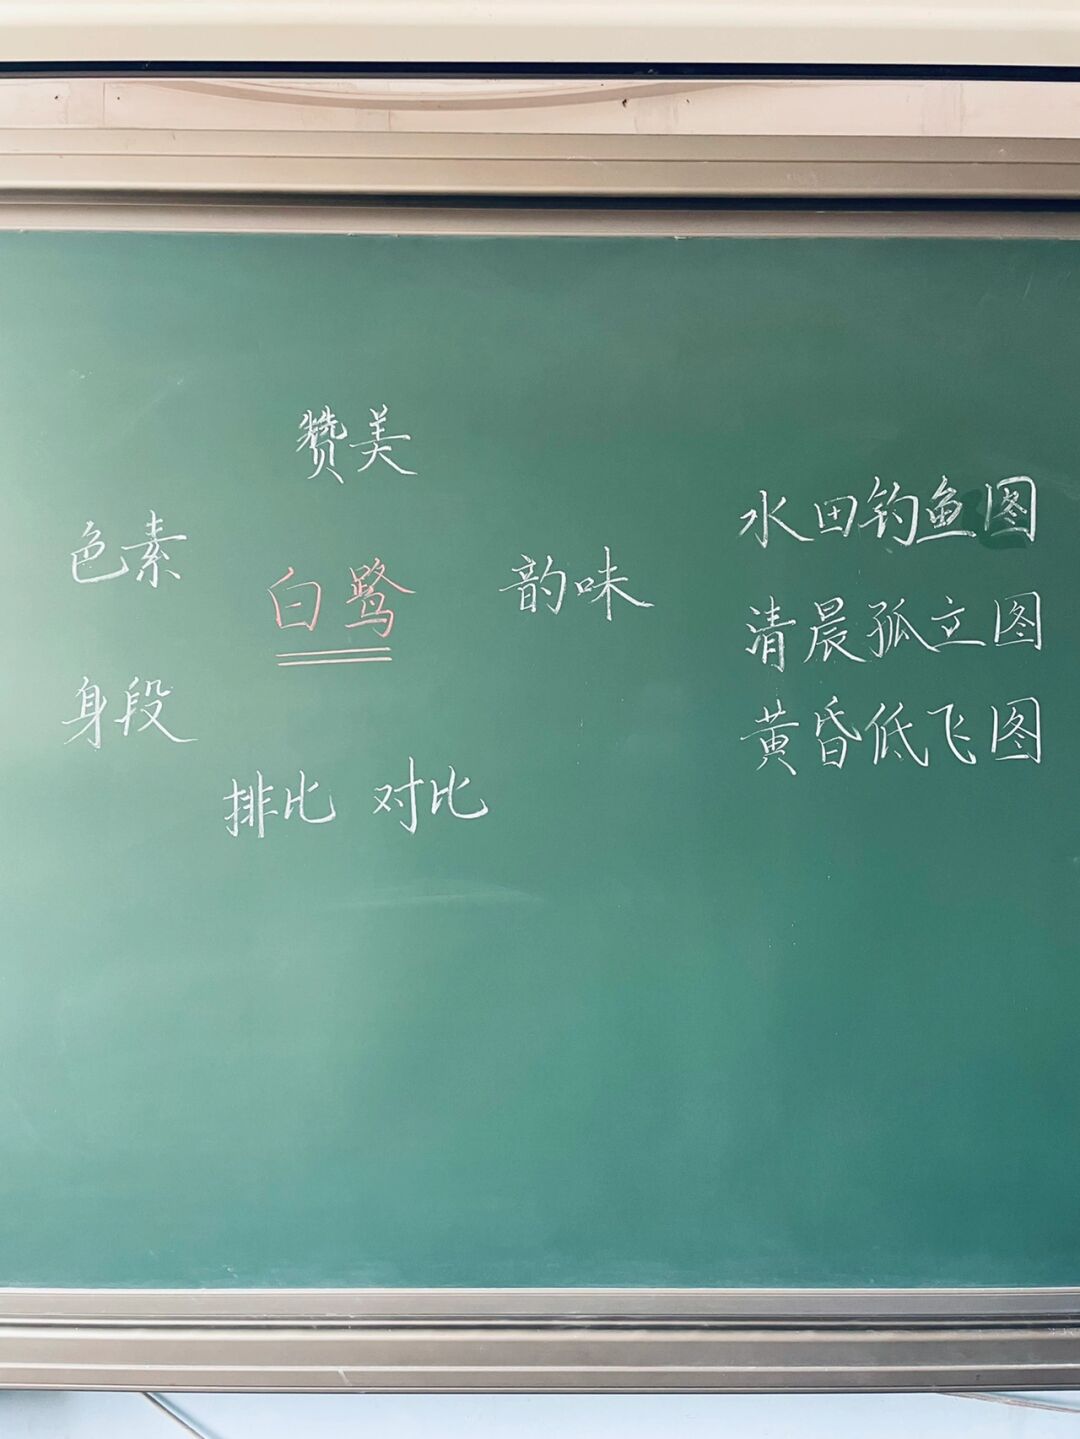 赞美
色素
白鹭
韵味
身段
排比 对比
水田钓鱼图
清晨孤立图
黄昏低飞图